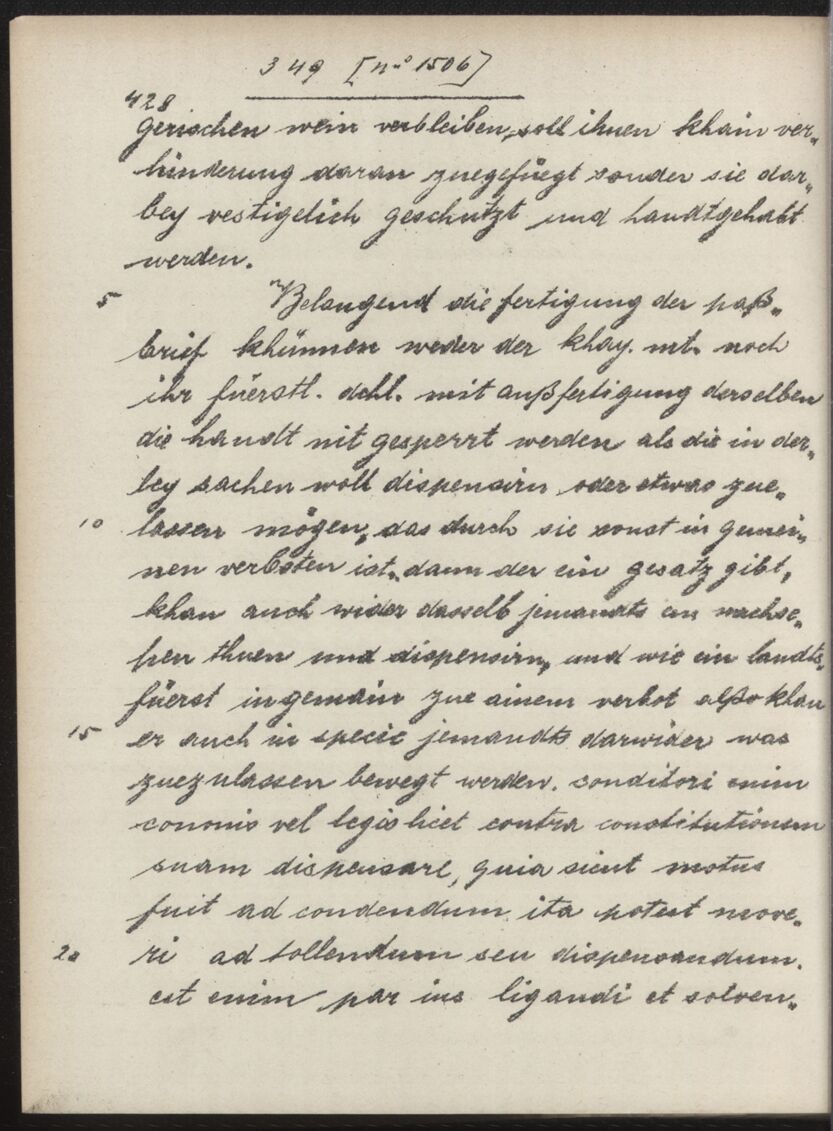 349 [nº 1506]
428
gerischen wein verbleiben, soll ihnen khain ver„
hinderung daran zuegefüegt sonder sie dar„
bey vestigelich geschutzt und handtgehabt
werden.
5 Belangend die fertigung der paß„
brief khünnen weder der khay. mt. noch
ihr füerstl. dchl. mit außfertigung derselben
die handt nit gesperrt werden als die in der„
ley sachen woll dispensirn oder etwas zue„
10 lassen mögen, das durch sie sonst in gemei„
nen verboten ist, dann der ein gesatz gibt,
khan auch wider dasselb jemandts ein nachse„
hen thuen und dispensirn, und wie ein landts„
füerst in gemain zue ainem verbot also khan
15 er auch in specie jemandts darwider was
zuezulassen bewegt werden. conditori enim
cononis vel legis licet contra constitutionem
suam dispensare, quia sicut motus
fuit ad condendum ita potest move„
20 ri ad tollendum seu dispensandum.
est enim par ius ligandi et solven„